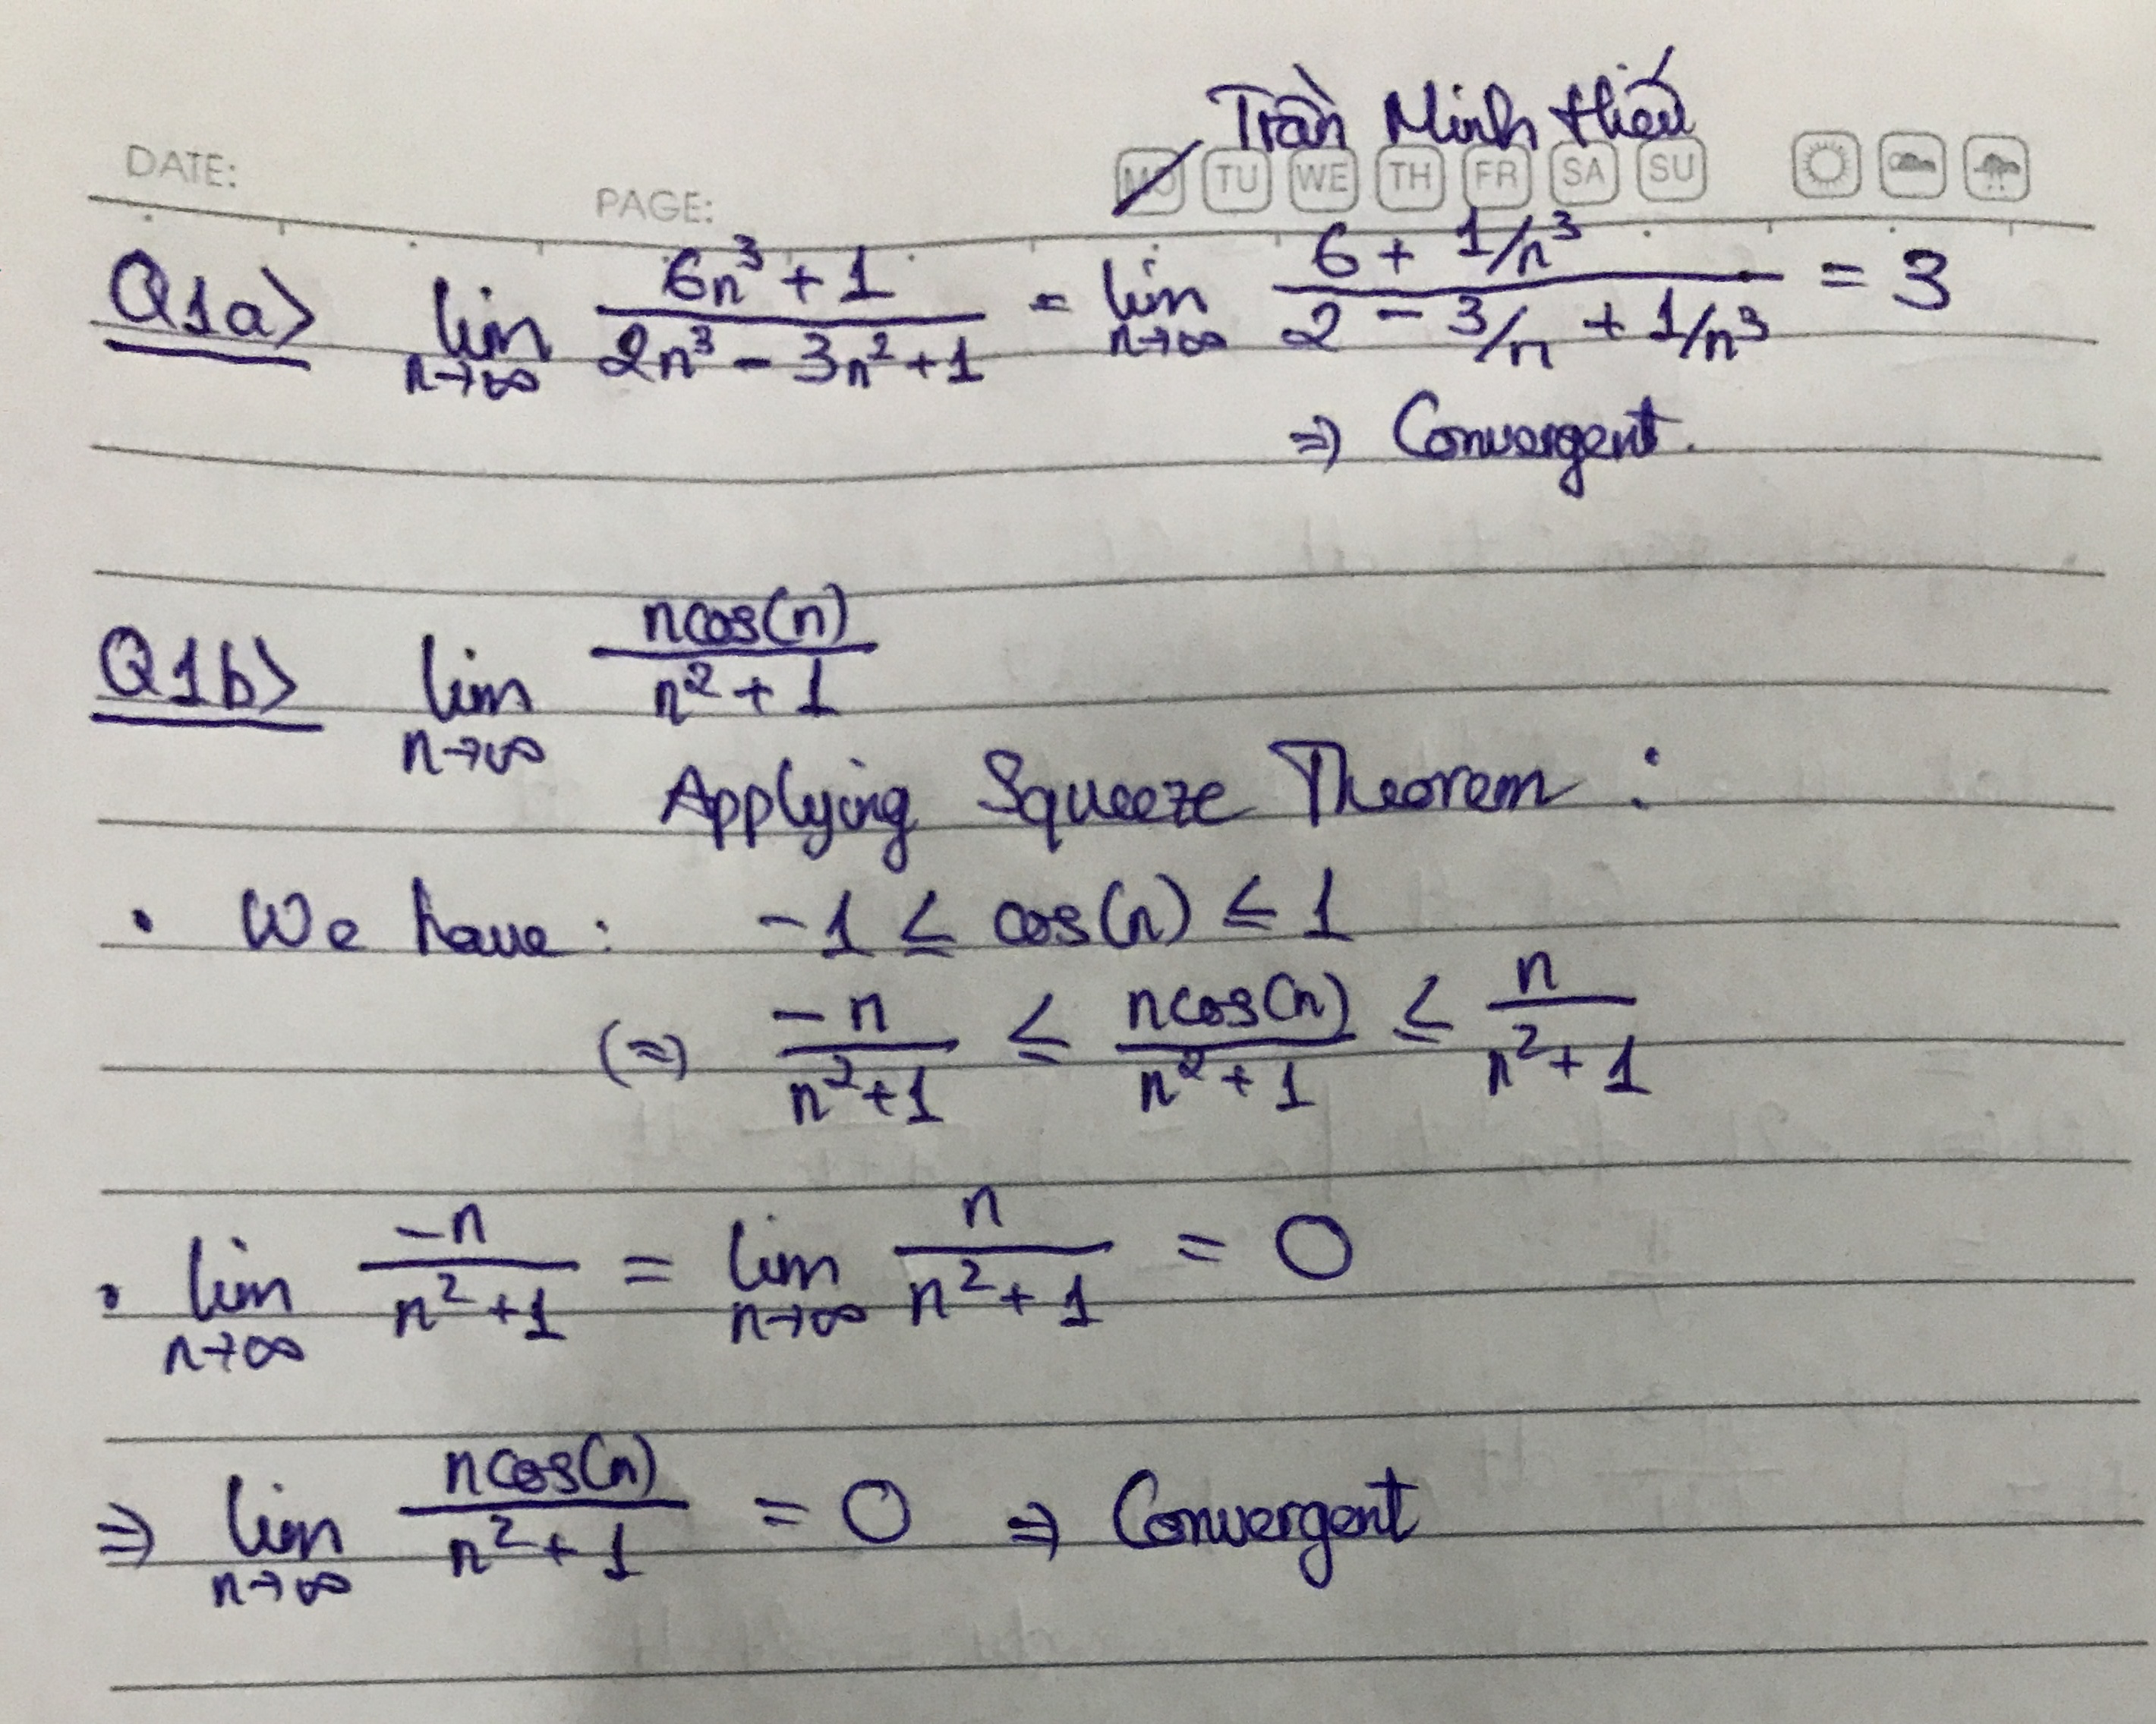 Trần Minh Hiếu
DATE: PAGE: MO TU WE TH FR SA SU
Q1a> lim n→∞ (6n³ + 1)/(2n³ - 3n² + 1) = lim n→∞ (6 + 1/n³)/(2 - 3/n + 1/n³) = 3
⇒ Convergent.
Q1b> lim n→∞ ncos(n)/(n² + 1)
Applying Squeeze Theorem :
• We have : -1 ≤ cos(n) ≤ 1
(⇒) -n/(n² + 1) ≤ ncos(n)/(n² + 1) ≤ n/(n² + 1)
• lim n→∞ -n/(n² + 1) = lim n→∞ n/(n² + 1) = 0
⇒ lim n→∞ ncos(n)/(n² + 1) = 0 ⇒ Convergent